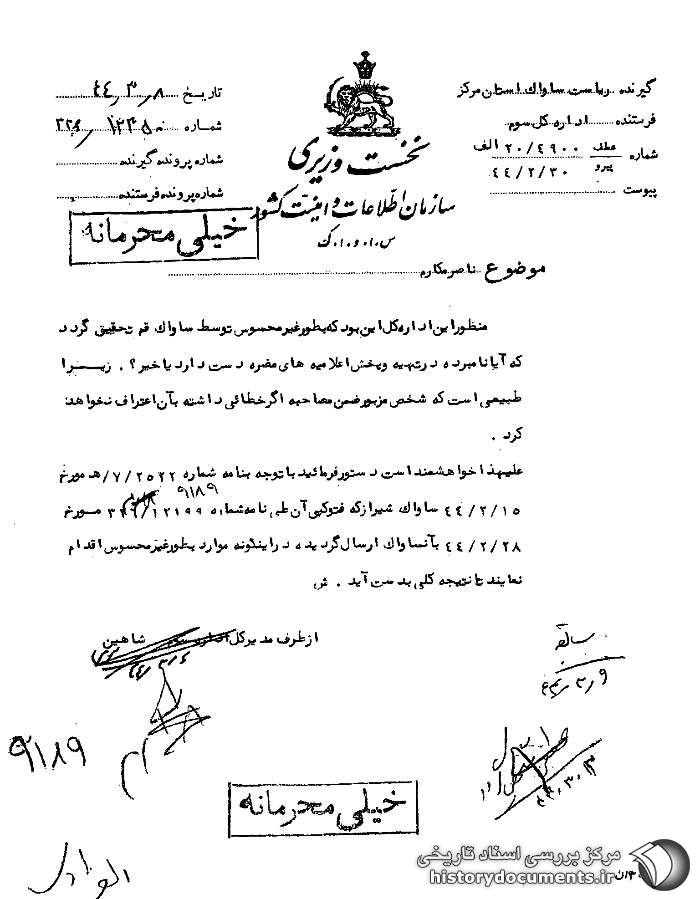 گیرنده ریاست ساواک استان مرکز
فرستنده اداره کل سوم
شماره عطف پیرو ۲۰/۴۹۰۰ الف
۴۴/۲/۳۰
پیوست
نخست وزیری
سازمان اطلاعات و امنیت کشور
س.ا.و.ا.ک
تاریخ ۴۴٫۳٫۸
شماره
شماره پرونده گیرنده
شماره پرونده فرستنده
خیلی محرمانه
موضوع ناصر مکارم
منظور این اداره کل این بود که بطور غیر محسوس توسط ساواک قم تحقیق گردد
که آیا نامبرده در تهیه و پخش اعلامیه های مضره دست دارد یا خیر؟ . زیرا
طبیعی است که شخص مزبور ضمن مصاحبه اگر خطائی داشته بآن اعتراف نخواهد
کرد .
علیهذا خواهشمند است دستور فرمائید با توجه بنامه شماره ۲۵۲۲/۷/ه مورخ
۹۱۸۹
۴۴/۲/۱۵ ساواک شیراز که فتوکپی آن طی نامه شماره مورخ
۴۴/۲/۲۸ بآنساواک ارسال گردیده در اینگونه موارد بطور غیر محسوس اقدام
نمایند تا نتیجه کلی بدست آید . ش
از طرف مدیر کل اداره سوم شاهین
سابقه
۹٫۳٫
۹۱۸۹
۴۴٫۳٫
خیلی محرمانه
مرکز بررسی اسناد تاریخی
historydocuments.ir